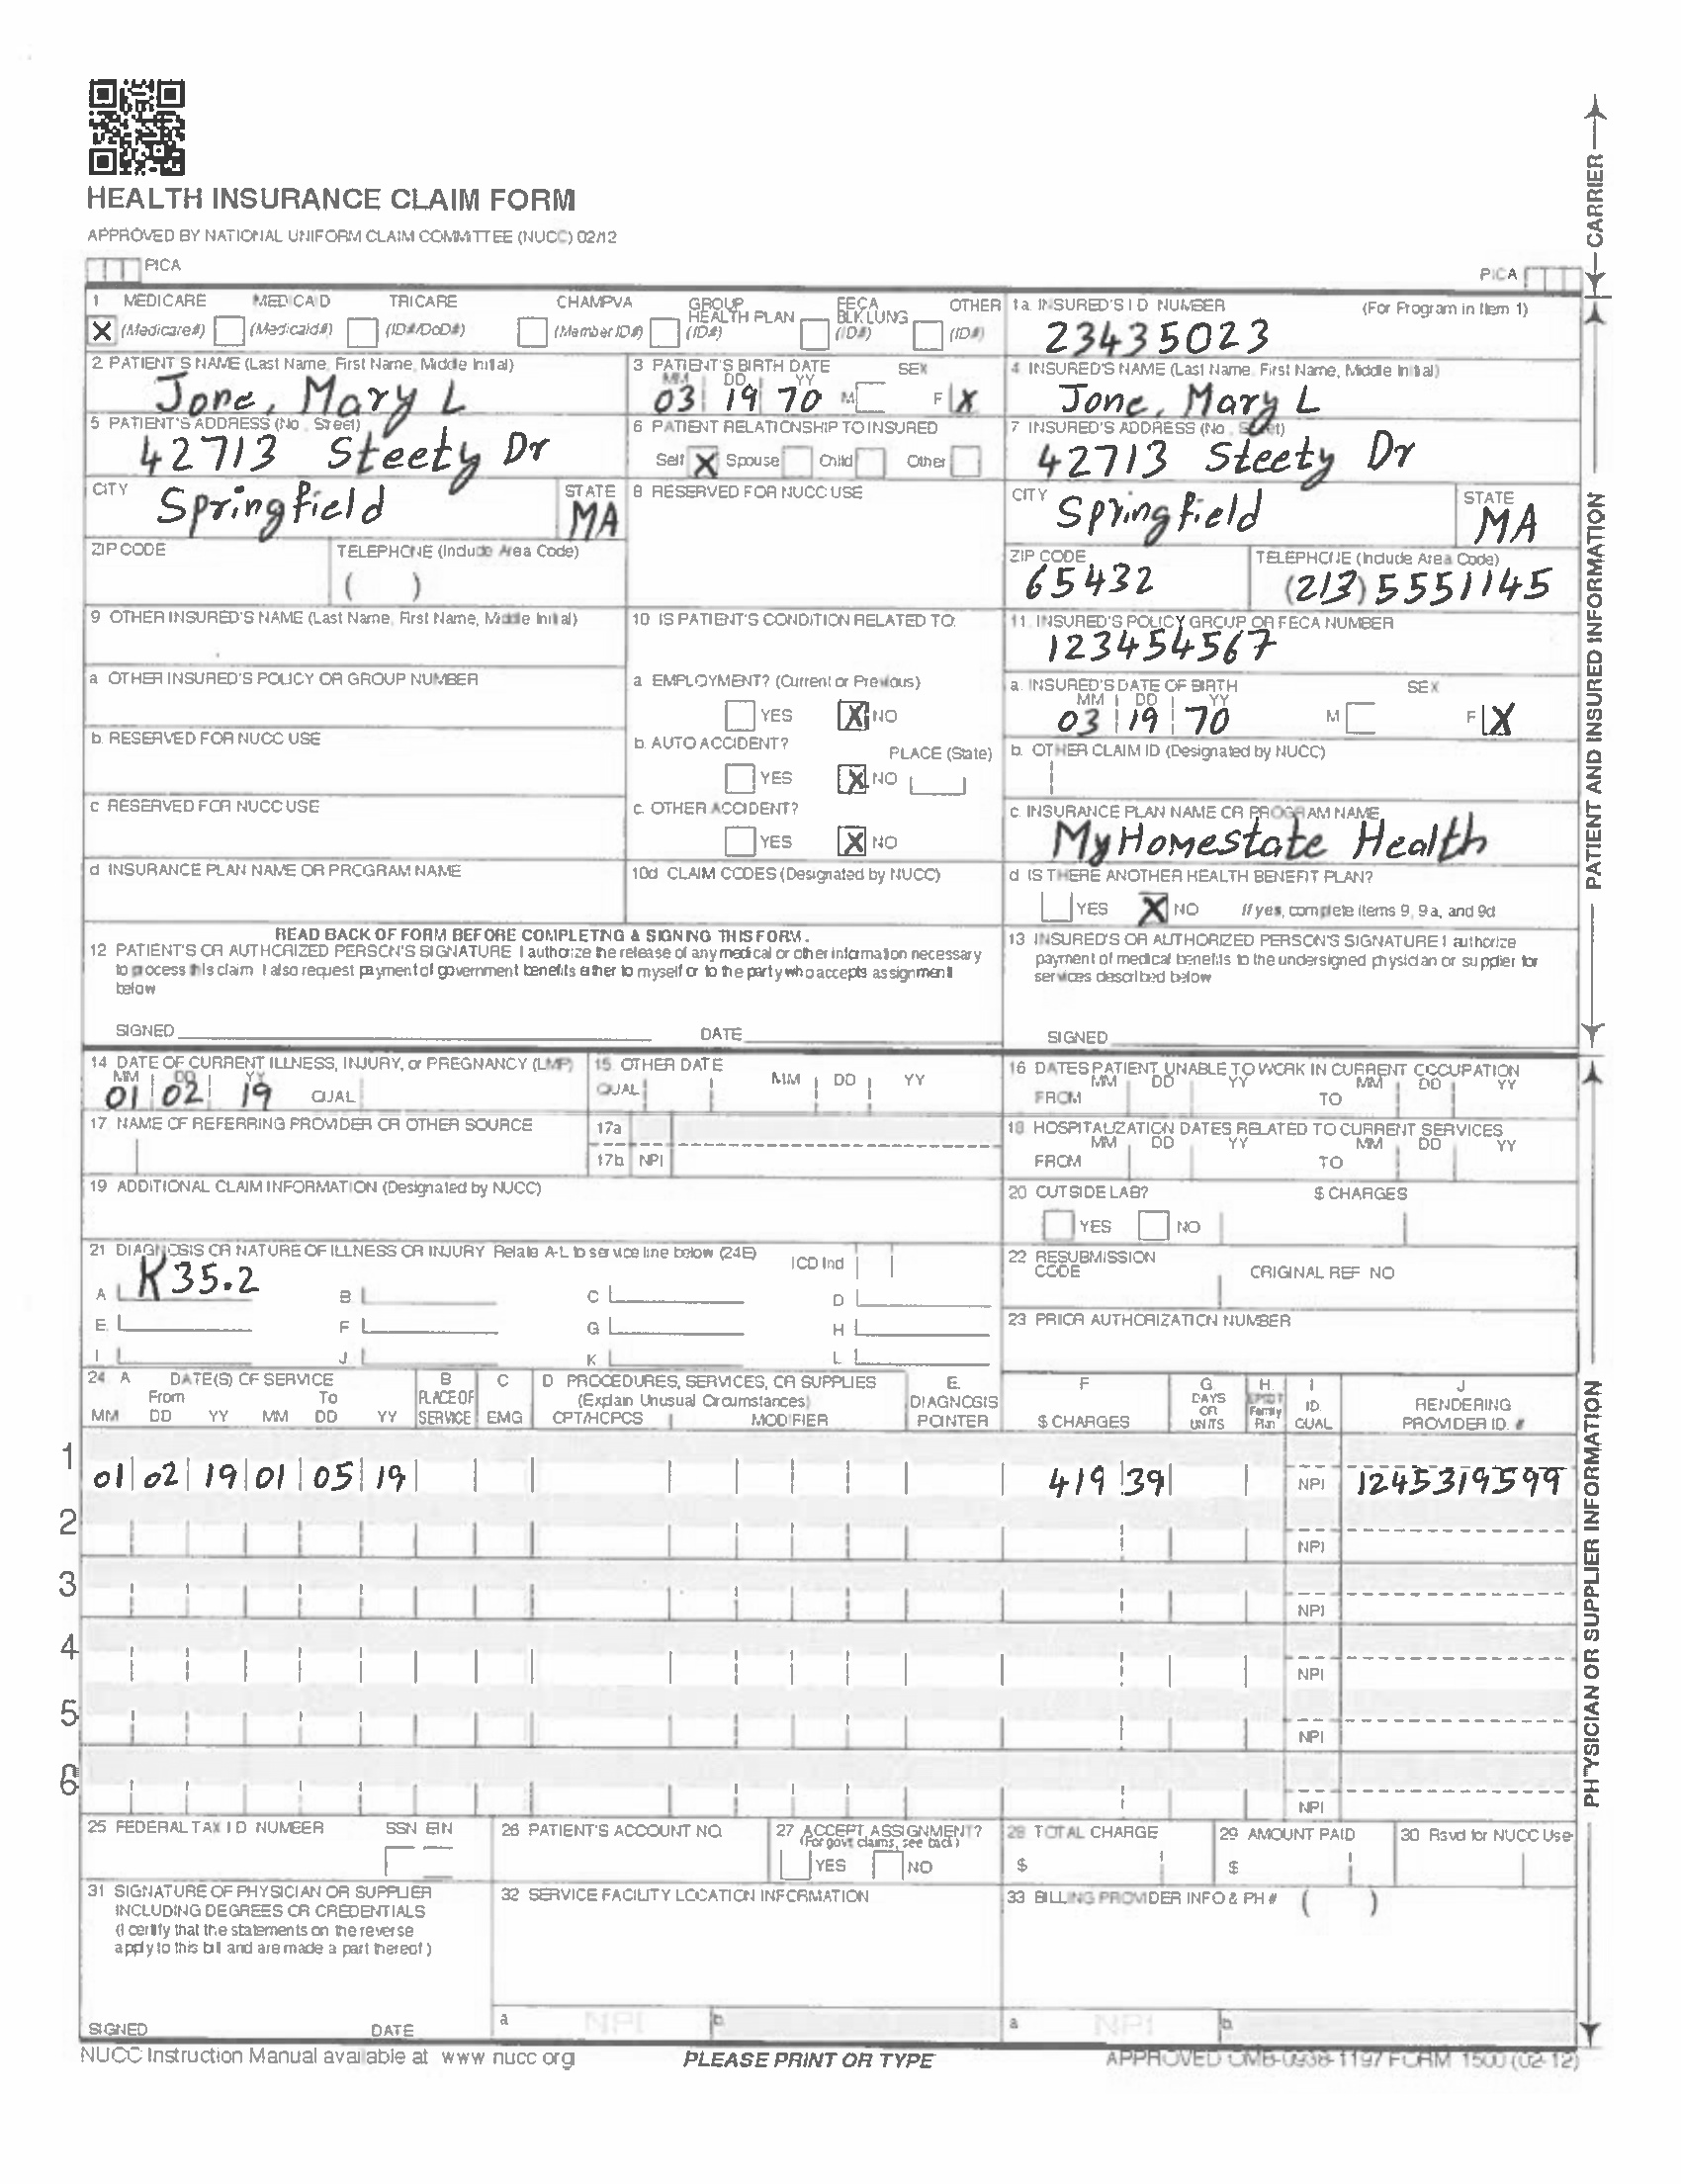 HEALTH INSURANCE CLAIM FORM
APPROVED BY NATIONAL UNIFORM CLAIM COMMITTEE (NUCC) 02/12
PICA
PICA
CARRIER
1 MEDICARE MEDICAID TRICARE CHAMPVA GROUP HEALTH PLAN FECA BLK LUNG OTHER
X (Medicare#) (Medicaid#) (ID#/DoD#) (Member ID#) (ID#) (ID#) (ID#)
1a INSURED'S I D NUMBER (For Program in Item 1)
23435023
2 PATIENT S NAME (Last Name, First Name, Middle Initial)
Jone, Mary L
3 PATIENT'S BIRTH DATE SEX
MM DD YY
03 19 70 M F X
4 INSURED'S NAME (Last Name, First Name, Middle Initial)
Jone, Mary L
5 PATIENT'S ADDRESS (No , Street)
42713 Steety Dr
6 PATIENT RELATIONSHIP TO INSURED
Self X Spouse Child Other
7 INSURED'S ADDRESS (No , Street)
42713 Steety Dr
CITY STATE
Springfield MA
8 RESERVED FOR NUCC USE
CITY STATE
Springfield MA
ZIP CODE TELEPHONE (Include Area Code)
( )
ZIP CODE TELEPHONE (Include Area Code)
65432 (213) 5551145
9 OTHER INSURED'S NAME (Last Name, First Name, Middle Initial)
10 IS PATIENT'S CONDITION RELATED TO:
11. INSURED'S POLICY GROUP OR FECA NUMBER
123454567
a OTHER INSURED'S POLICY OR GROUP NUMBER
a EMPLOYMENT? (Current or Previous)
YES X NO
a. INSURED'S DATE OF BIRTH SEX
MM DD YY
03 19 70 M F X
b. RESERVED FOR NUCC USE
b. AUTO ACCIDENT? PLACE (State)
YES X NO
b. OTHER CLAIM ID (Designated by NUCC)
c RESERVED FOR NUCC USE
c. OTHER ACCIDENT?
YES X NO
c. INSURANCE PLAN NAME OR PROGRAM NAME
My Homestate Health
d INSURANCE PLAN NAME OR PROGRAM NAME
10d CLAIM CODES (Designated by NUCC)
d IS THERE ANOTHER HEALTH BENEFIT PLAN?
YES X NO If yes, complete items 9, 9a, and 9d
PATIENT AND INSURED INFORMATION
READ BACK OF FORM BEFORE COMPLETING & SIGNING THIS FORM.
12 PATIENT'S OR AUTHORIZED PERSON'S SIGNATURE I authorize the release of any medical or other information necessary
to process this claim I also request payment of government benefits either to myself or to the party who accepts assignment
below
SIGNED DATE
13 INSURED'S OR AUTHORIZED PERSON'S SIGNATURE I authorize
payment of medical benefits to the undersigned physician or supplier for
services described below
SIGNED
14 DATE OF CURRENT ILLNESS, INJURY, or PREGNANCY (LMP)
MM DD YY
01 02 19 QUAL
15 OTHER DATE
QUAL MM DD YY
16 DATES PATIENT UNABLE TO WORK IN CURRENT OCCUPATION
MM DD YY MM DD YY
FROM TO
17 NAME OF REFERRING PROVIDER OR OTHER SOURCE
17a
17b NPI
18 HOSPITALIZATION DATES RELATED TO CURRENT SERVICES
MM DD YY MM DD YY
FROM TO
19 ADDITIONAL CLAIM INFORMATION (Designated by NUCC)
20 OUTSIDE LAB? $ CHARGES
YES NO
21 DIAGNOSIS OR NATURE OF ILLNESS OR INJURY Relate A-L to service line below (24E) ICD Ind
A K35.2 B C D
E. F G H
I J K L
22 RESUBMISSION
CODE ORIGINAL REF NO
23 PRIOR AUTHORIZATION NUMBER
24 A DATE(S) OF SERVICE B C D PROCEDURES, SERVICES, OR SUPPLIES E. F G. H. I J
From To PLACE OF (Explain Unusual Circumstances) DIAGNOSIS DAYS OR EPSDT Family ID. RENDERING
MM DD YY MM DD YY SERVICE EMG CPT/HCPCS MODIFIER POINTER $ CHARGES UNITS Plan QUAL PROVIDER ID. #
1
01 02 19 01 05 19 419 39 NPI 1245319599
2
NPI
3
NPI
4
NPI
5
NPI
6
NPI
PHYSICIAN OR SUPPLIER INFORMATION
25 FEDERAL TAX I D NUMBER SSN EIN
26 PATIENT'S ACCOUNT NO.
27 ACCEPT ASSIGNMENT?
(For govt claims, see back)
YES NO
28 TOTAL CHARGE
$
29 AMOUNT PAID
$
30 Rsvd for NUCC Use
31 SIGNATURE OF PHYSICIAN OR SUPPLIER
INCLUDING DEGREES OR CREDENTIALS
(I certify that the statements on the reverse
apply to this bill and are made a part thereof )
SIGNED DATE
32 SERVICE FACILITY LOCATION INFORMATION
a NPI b
33 BILLING PROVIDER INFO & PH # ( )
a NPI b
NUCC Instruction Manual available at www nucc org
PLEASE PRINT OR TYPE
APPROVED OMB-0938-1197 FORM 1500 (02-12)